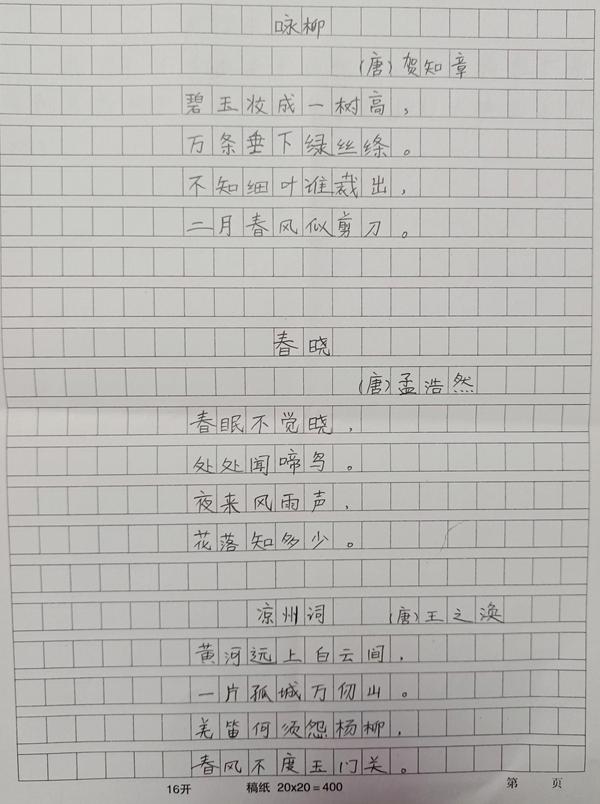 咏柳
(唐)贺知章
碧玉妆成一树高,
万条垂下绿丝绦。
不知细叶谁裁出,
二月春风似剪刀。
春晓
(唐)孟浩然
春眠不觉晓,
处处闻啼鸟。
夜来风雨声,
花落知多少。
凉州词 (唐)王之涣
黄河远上白云间,
一片孤城万仞山。
羌笛何须怨杨柳,
春风不度玉门关。
16开 稿纸 20×20=400 第 页